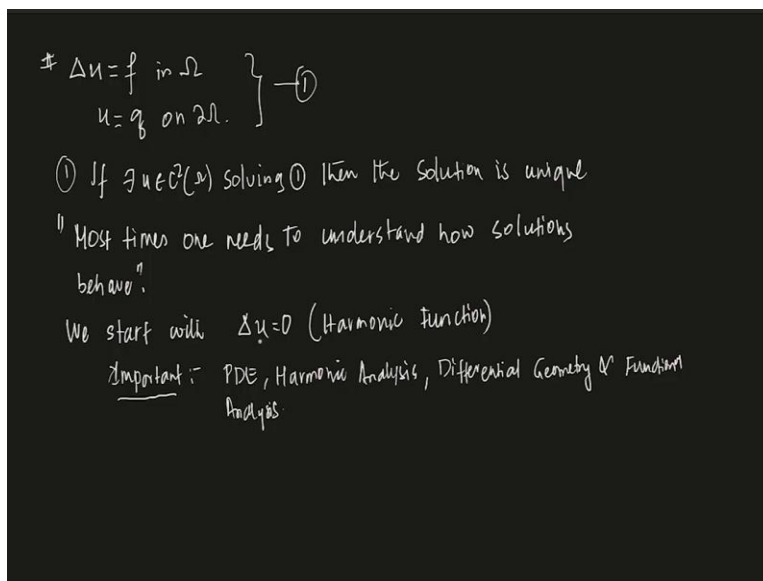 # Δu = f in Ω
u = g on ∂Ω. } — ①
① If ∃ u ∈ C²(Ω) solving ① then the solution is unique
" Most times one needs to understand how solutions
behave".
We start with Δu = 0 (Harmonic Function)
Important :- PDE, Harmonic Analysis, Differential Geometry & Functional
Analysis.